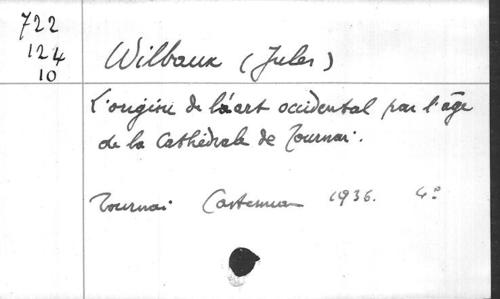 722
124
10
Wilbaux (Jules)
L'origine de l'art occidental par l'âge
de la Cathédrale de Tournai.
Tournai Casterman 1936. 4º